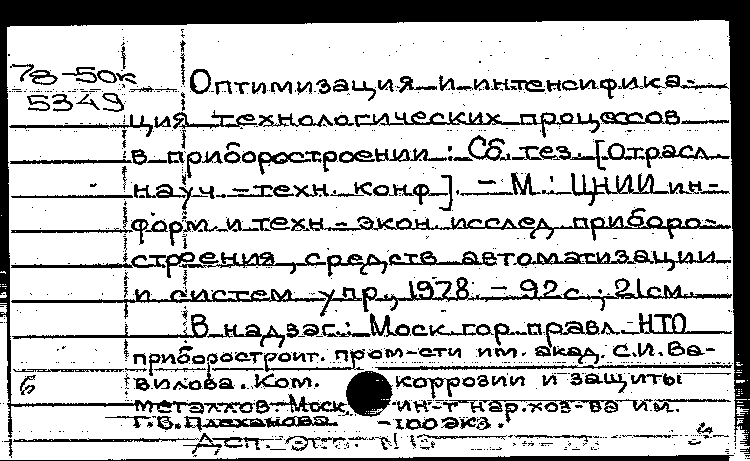 78-50к
5349
Оптимизация и интенсифика-
ция технологических процессов
в приборостроении : Сб. тез. [Отрасл.
науч. - техн. конф.]. - М.: ЦНИИ ин-
форм. и техн - экон. исслед. приборо-
строения, средств автоматизации
и систем упр., 1978. - 92с.; 21см.
В надзаг.: Моск. гор. правл. НТО
приборостроит. пром-сти им. акад. С.И. Ва-
вилова. Ком. коррозии и защиты
металлов. Моск. ин-т нар. хоз-ва им.
Г.В. Плеханова. -100 экз.
б
Деп. экз. N